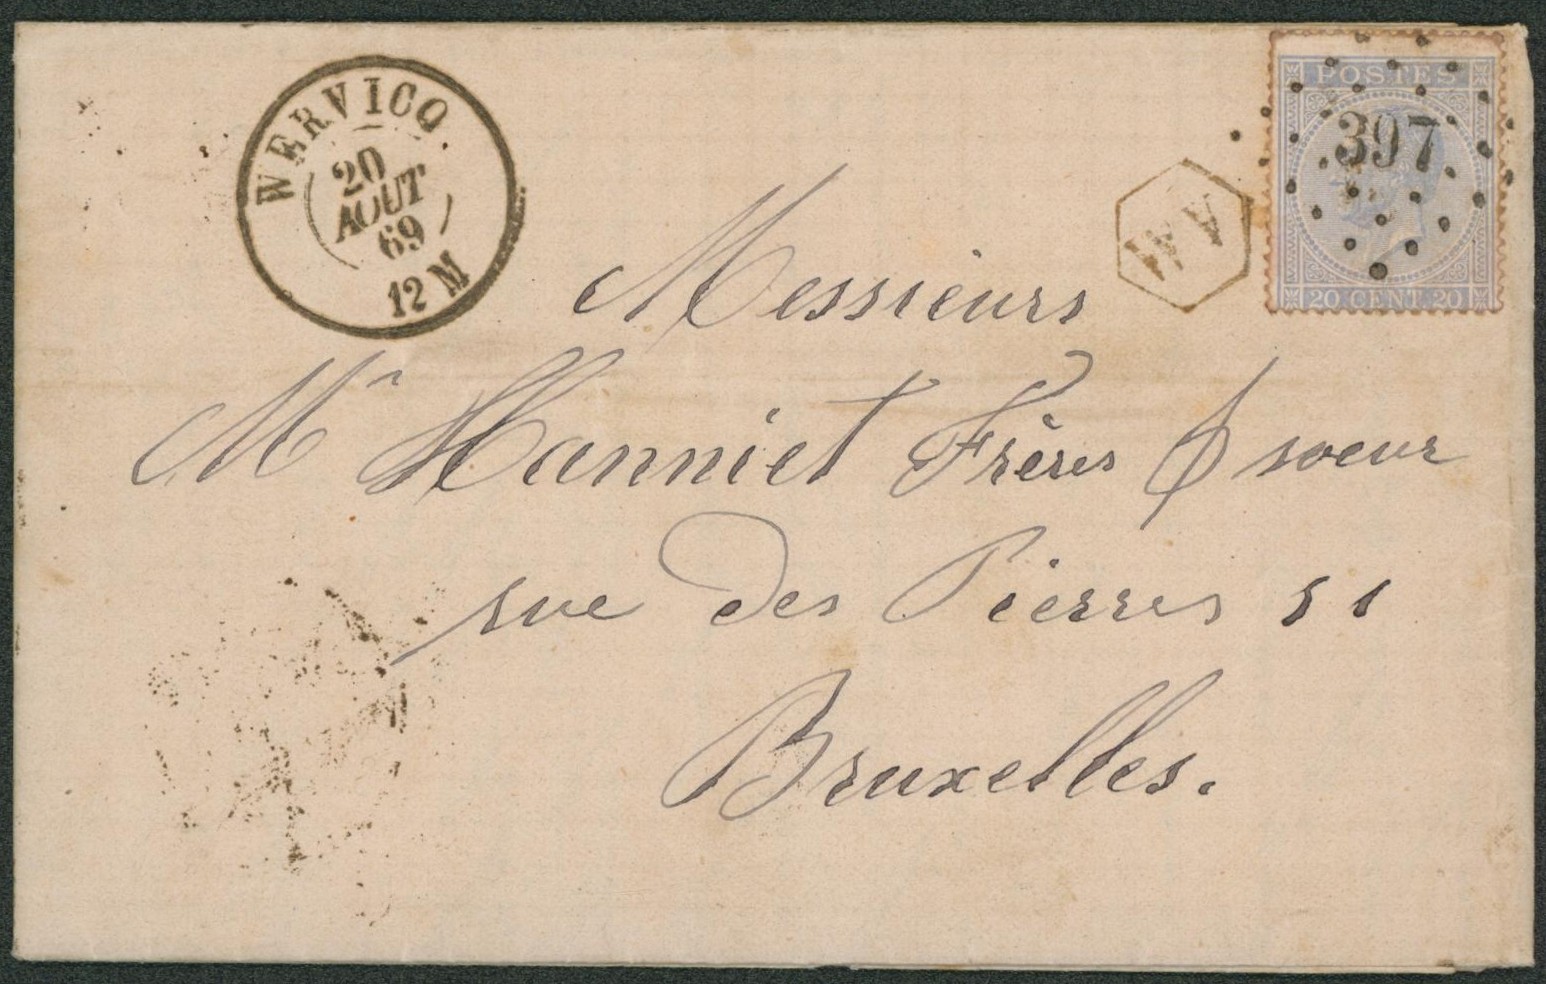 WERVICQ
20
AOUT
69
12 M
POSTES
397
20 CENT. 20
Messieurs
Mr Hanniet Frères & soeur
rue des Pierres 51
Bruxelles.